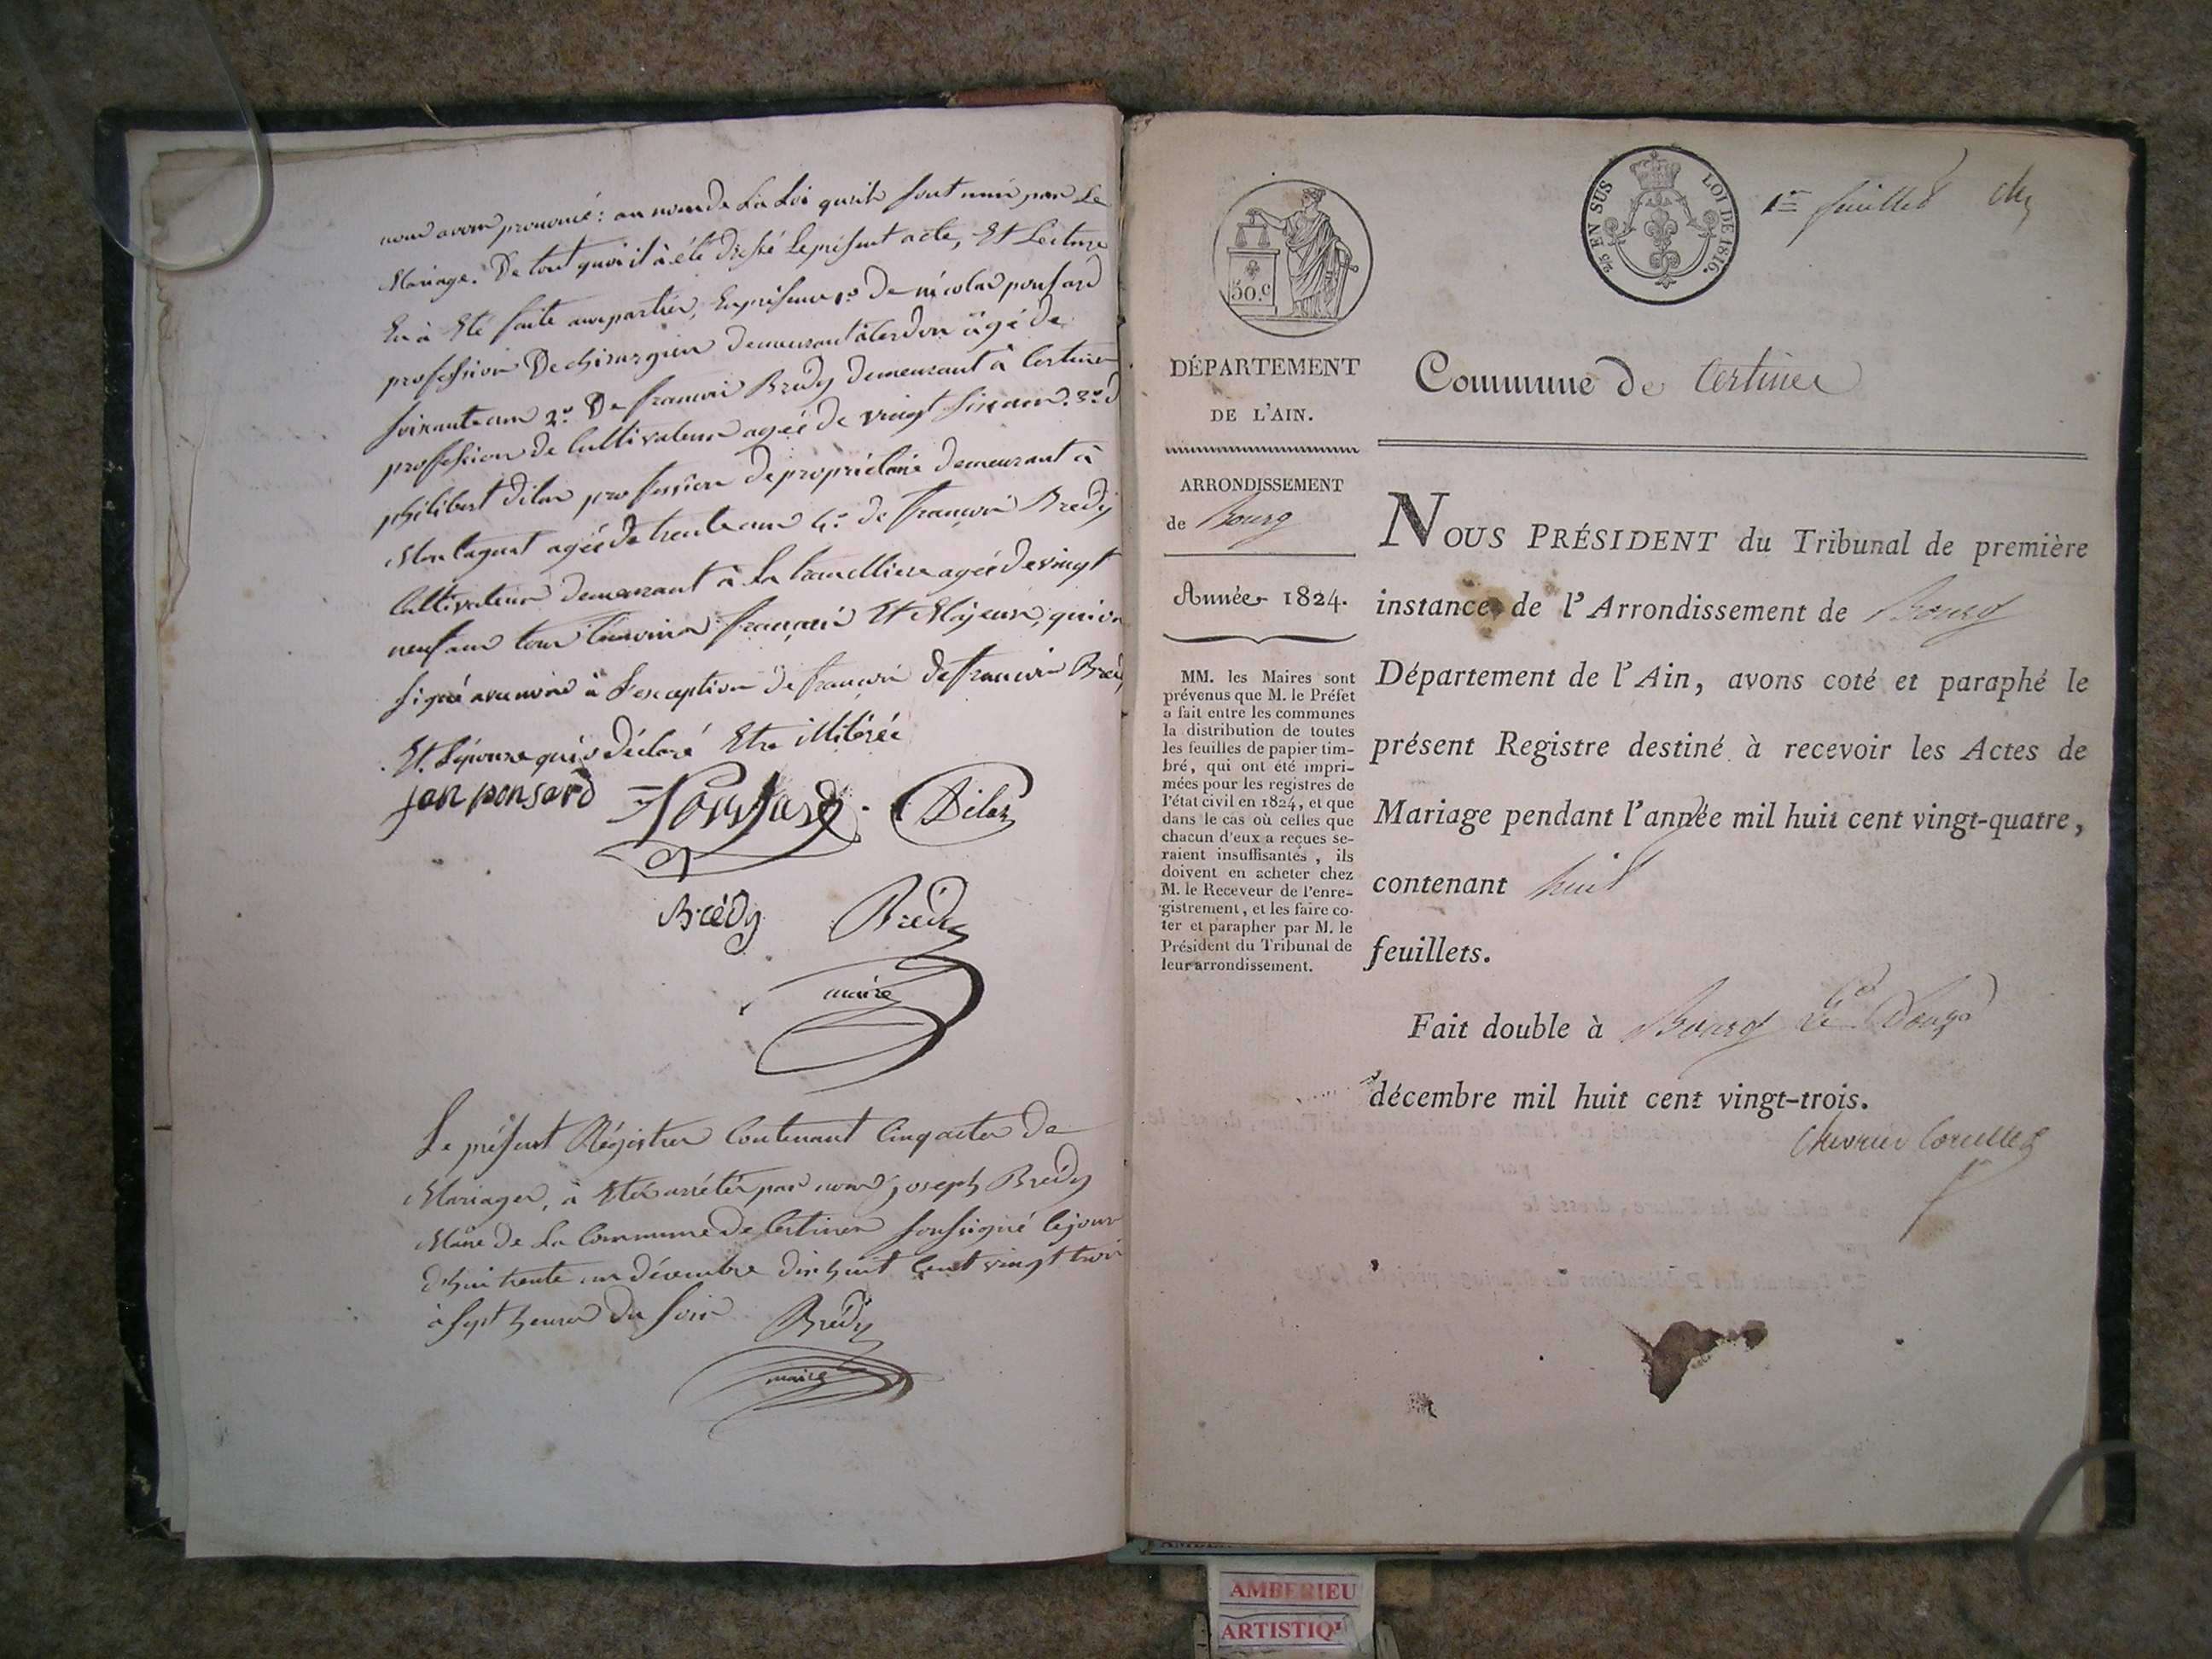 nous avons prononcé: au nom de La Loi quils sont unis par Le
Mariage. De tout quoi il à été dressé Le présent acte, Et Lecture
En à Eté faite aux parties, En présence 1º De nicolas ponsard
profession De chirurgien demeurant à Cerdon âgé de
soixante ans 2º De francois Brédy demeurant à Certines
proffession de Cultivateur agée de vingt six ans. 3º d
philibert dilas profession de propriétaire demeurant à
Montagnat agée de trente ans 4º de françois Bredy
Cultivateur demeurant à La tranclliere agée de vingt
neuf ans tous temoins français Et Majeurs, qui on
signé avec nous à L'exception de francois de francois Bredy
Et. L'épouse qui o déclaré Etre illitérée
jan ponsard Ponsard Dilas
Brédy Brédy
maire
Le présent Régistre Contenant Cinq actes de
Mariages, à Eté arrêtés par nous joseph Brédy
Maire de La Commune de Certines soussigné le jour
d'hui trente un décembre dix huit Cent vingt trois
à sept heures du soir Brédy
maire
2/5 EN SUS LOI DE 1816.
1er feuillet
50.c
DÉPARTEMENT
DE L'AIN.
Commune de Certines
ARRONDISSEMENT
de Bourg
Année 1824.
MM. les Maires sont
prévenus que M. le Préfet
a fait entre les communes
la distribution de toutes
les feuilles de papier tim-
bré, qui ont été impri-
mées pour les registres de
l'état civil en 1824, et que
dans le cas où celles que
chacun d'eux a reçues se-
raient insuffisantes, ils
doivent en acheter chez
M. le Receveur de l'enre-
gistrement, et les faire co-
ter et parapher par M. le
Président du Tribunal de
leur arrondissement.
NOUS PRÉSIDENT du Tribunal de première
instance de l'Arrondissement de Bourg
Département de l'Ain, avons coté et paraphé le
présent Registre destiné à recevoir les Actes de
Mariage pendant l'année mil huit cent vingt-quatre,
contenant huit
feuillets.
Fait double à Bourg Le Douze
décembre mil huit cent vingt-trois.
Chevrier Corcelles
AMBERIEU
ARTISTIQ